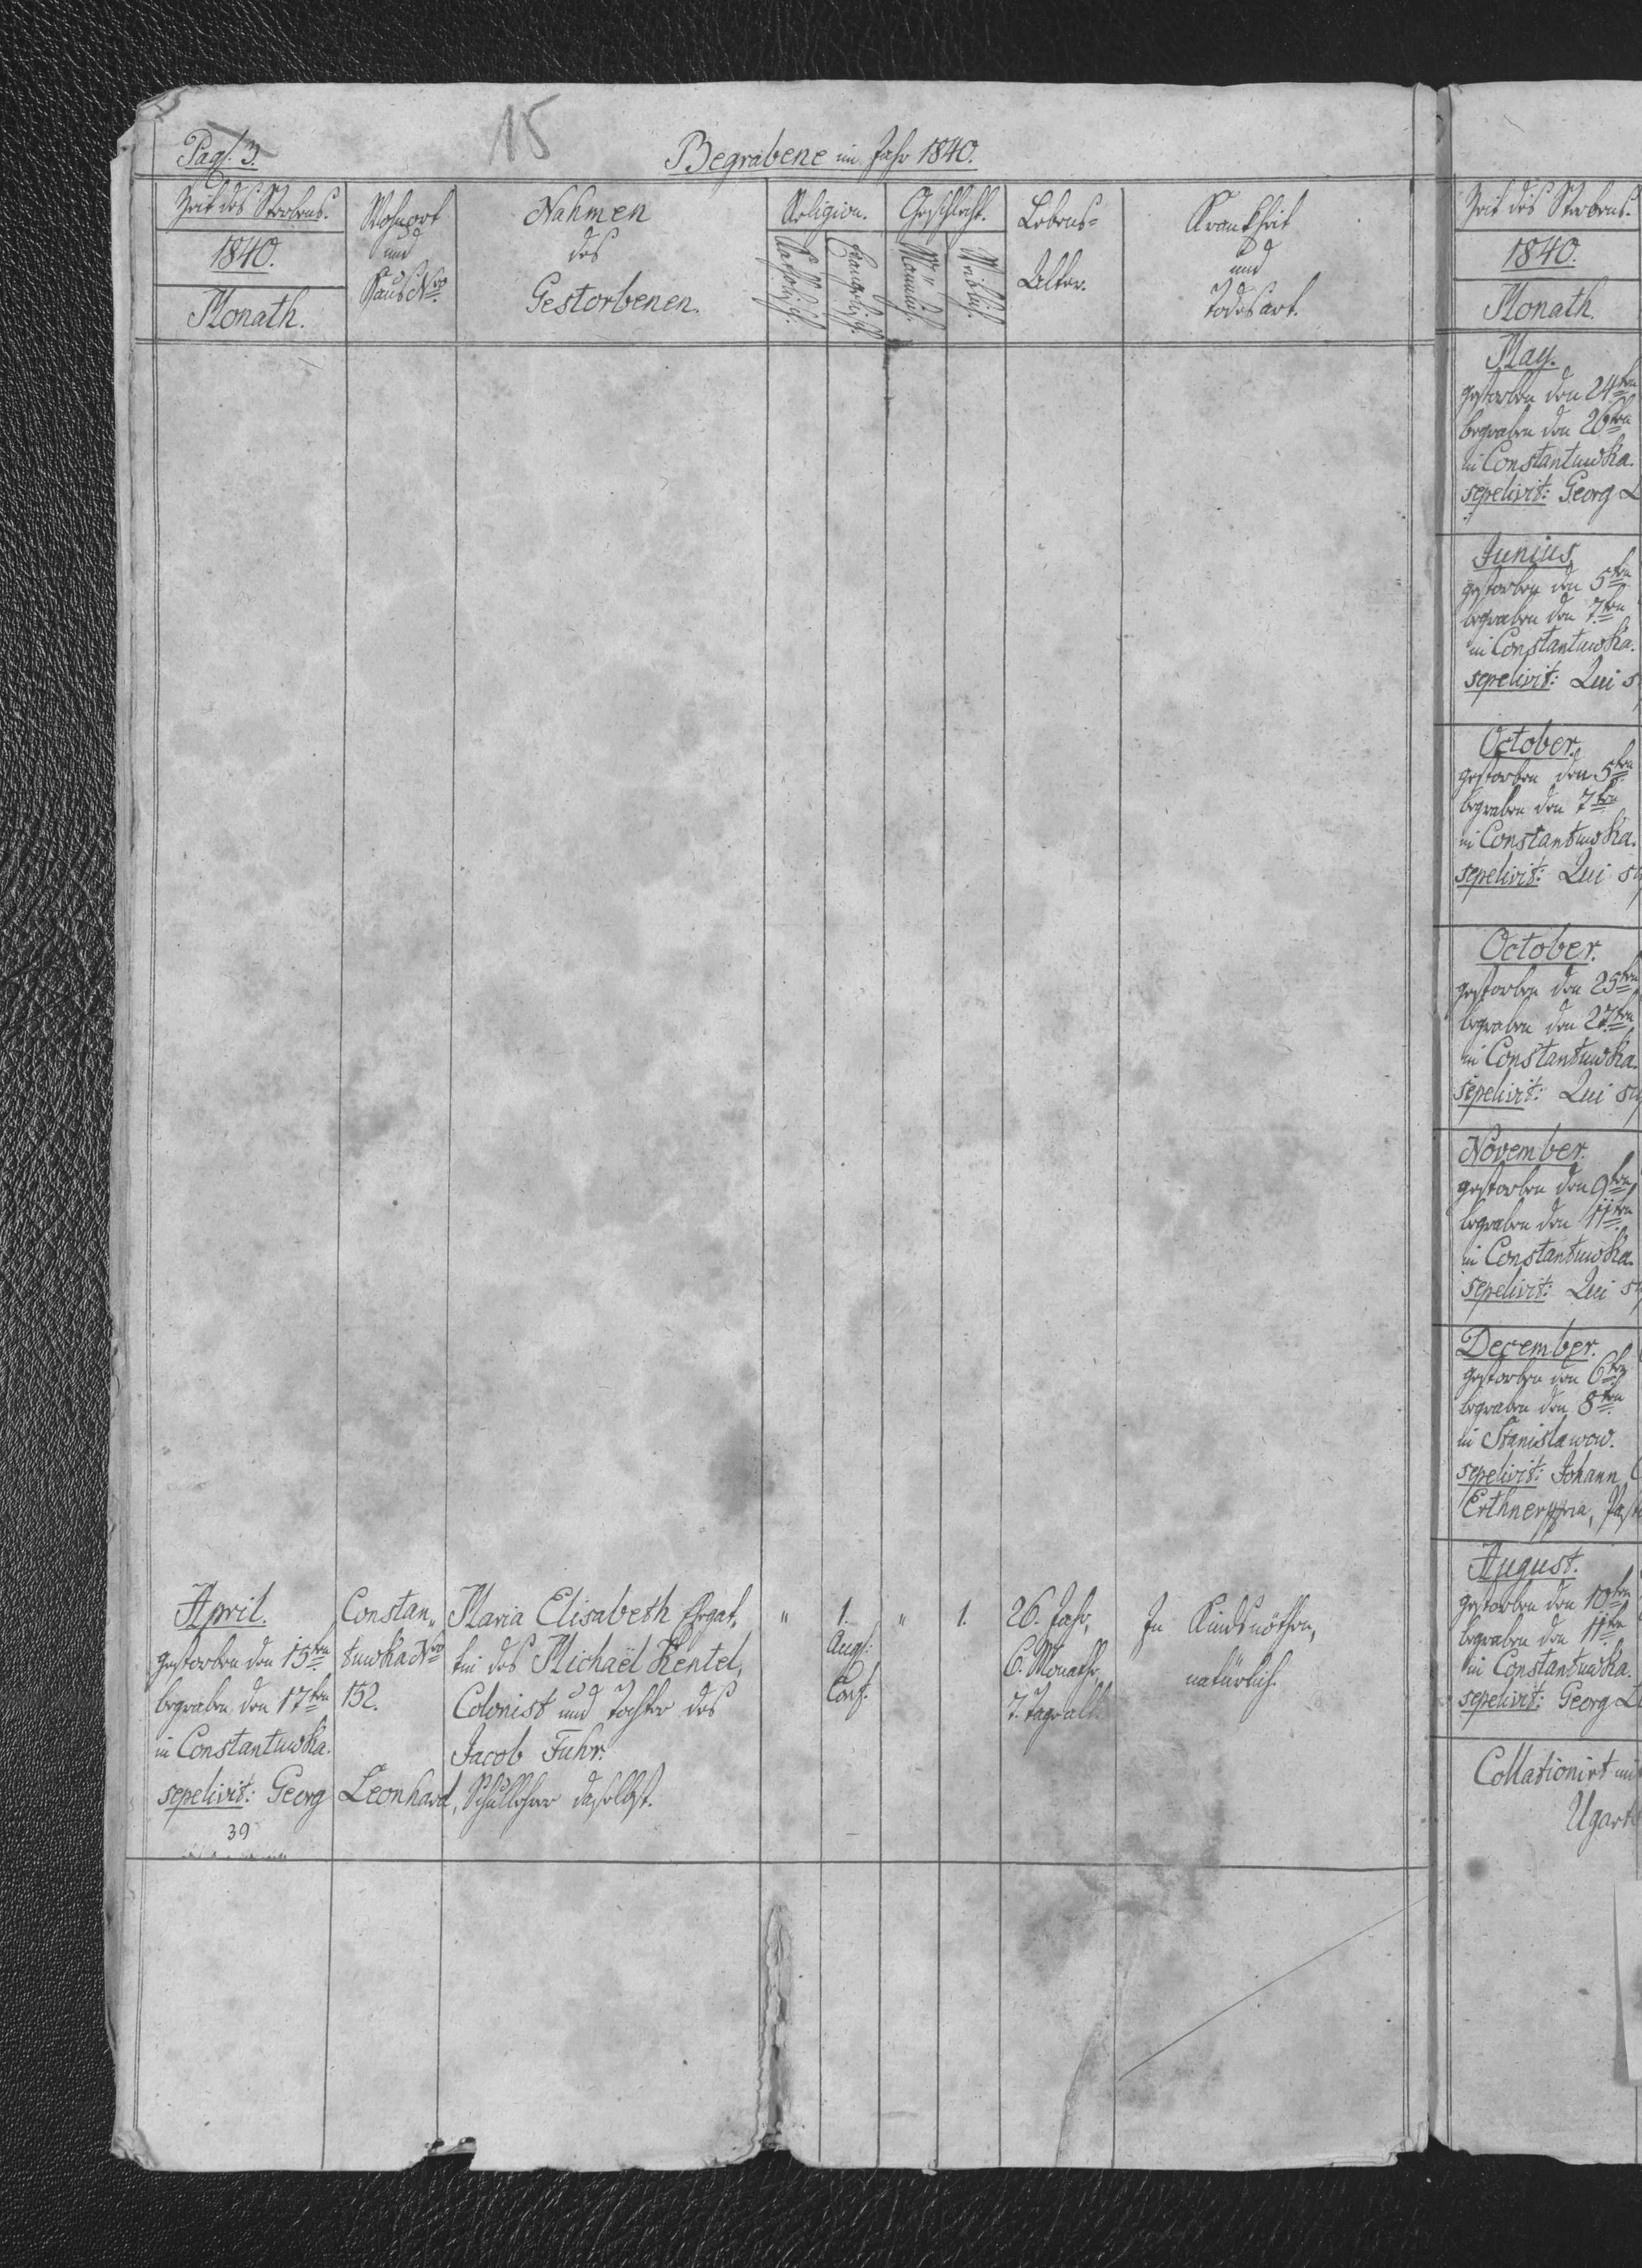 15
Pag. 3.
Begrabene im Jahr 1840.
Zeit des Sterbens.
1840.
Monath.
Wohnort
und
Haus Nro
Nahmen
des
Gestorbenen.
Religion.
Katholisch.
Evangelisch.
Geschlecht.
Männlich.
Weiblich.
Lebens-
Alter.
Krankheit
und
Todesart.
April.
gestorben den 15ten
begraben den 17ten
in Constantuwka.
sepelivit: Georg Leonhard, Schullehrer daselbst.
39
Constan„
tuwka Nro
152.
Maria Elisabeth Ehegat„
tin des Michaël Kentel,
Colonist und Tochter des
Jacob Fuhr.
"
1.
Augs:
Conf.
"
1.
26. Jahr,
6. Monathe,
7. Tage alt.
In Kindsnöthen,
natürlich.
Zeit des Sterbens.
1840.
Monath.
May.
gestorben den 24ten
begraben den 26ten
in Constantuwka.
sepelivit: Georg L
Junius
gestorben den 5ten
begraben den 7ten
in Constantuwka.
sepelivit: Qui s
October.
gestorben den 5ten
begraben den 7ten
in Constantuwka.
sepelivit: Qui su
October.
gestorben den 25ten
begraben den 27ten
in Constantuwka.
sepelivit: Qui su
November.
gestorben den 9ten
begraben den 11ten
in Constantuwka.
sepelivit: Qui su
December.
gestorben den 6ten
begraben den 8ten
in Stanislawow.
sepelivit: Johann
Erthner mpria, Past
August.
gestorben den 10ten
begraben den 11ten
in Constantuwka.
sepelivit: Georg Le
Collationirt mit
Ugart